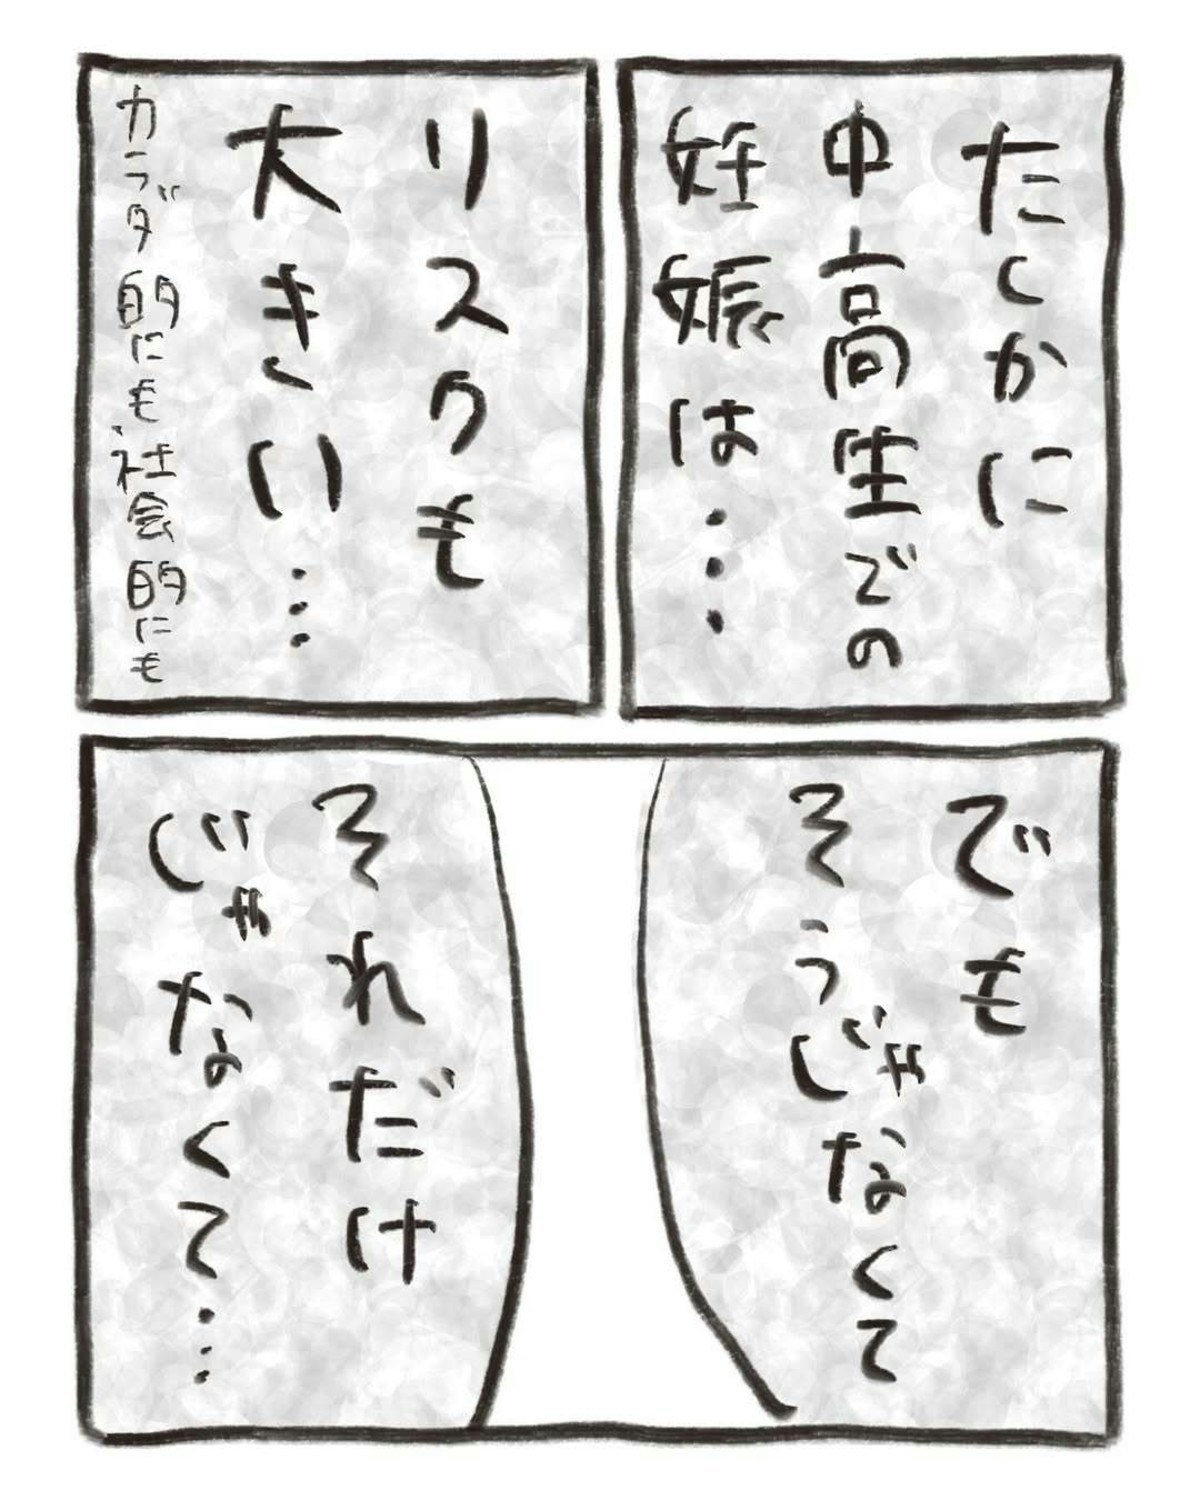 たしかに
中高生での
妊娠は・・・
リスクも
大きい…
カラダ的にも社会的にも
でも
そうじゃなくて
それだけ
じゃなくて…